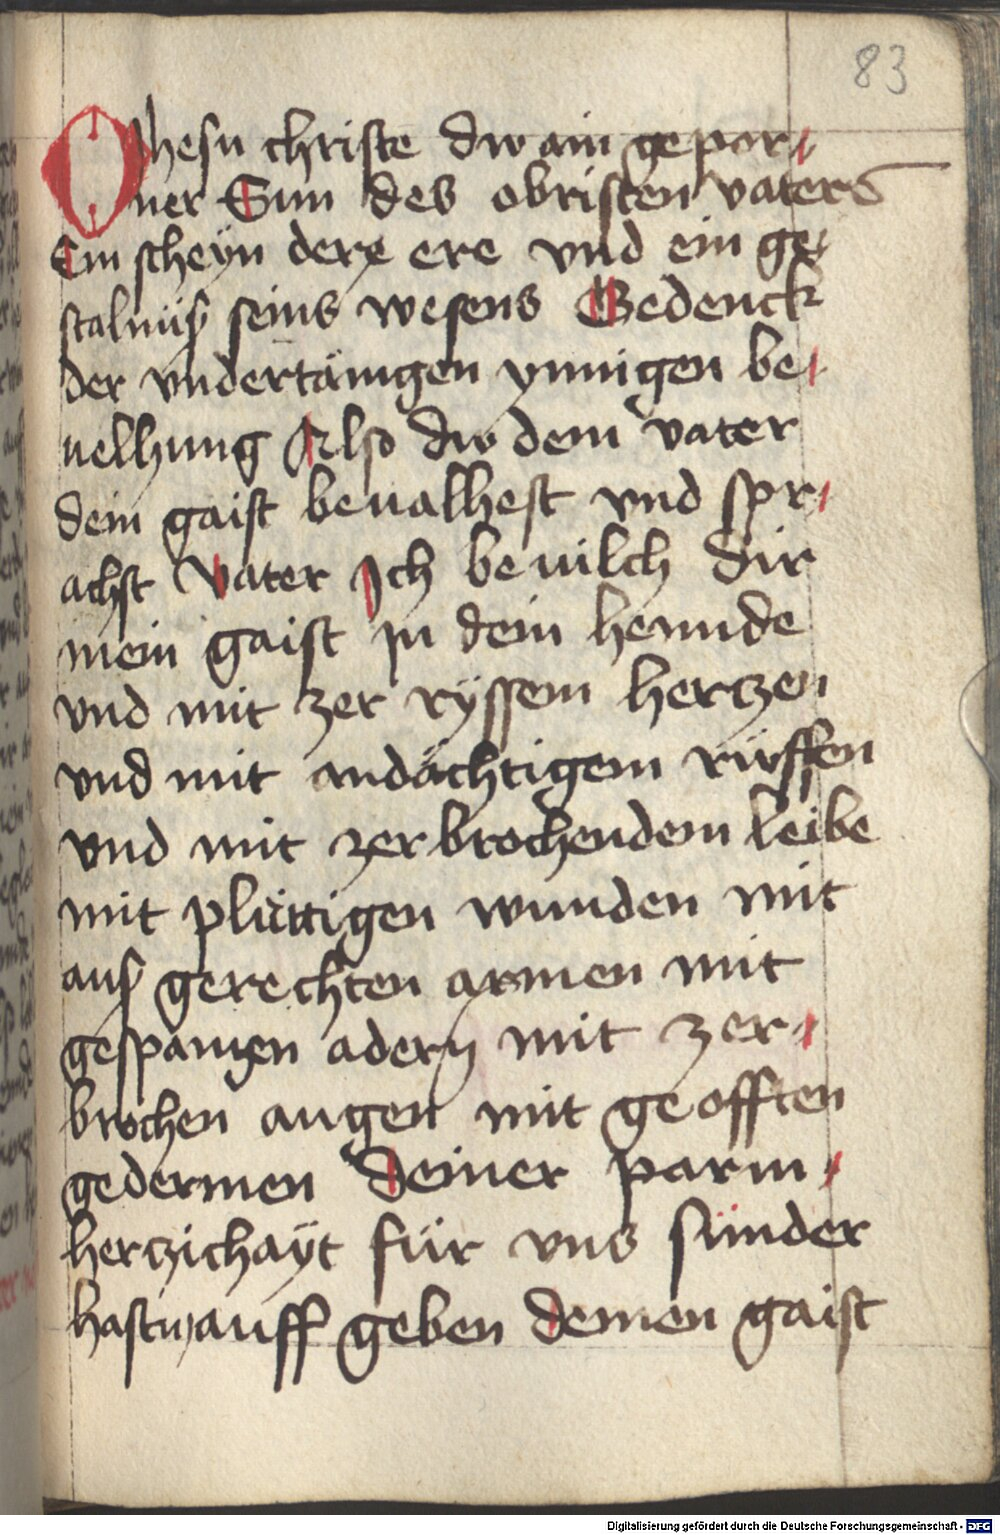 83
O Jhesu christe dw ain gepor-
ner Sun des obristen vaters
Ein scheyn derr ere vnd ein ge-
stalnüß seins wesens Gedenck
der vndertänigen ynnigen be-
uelhung Also dw dem vater
dein gaist beualhest vnd spr-
achst Vater Ich beuilch dir
mein gaist in dein hennde
vnd mit zer ryssem hertzen
vnd mit andächtigem rüeffen
vnd mit zerbrochendem leibe
mit plüttigen wunden mit
auß gerechten armen mit
gespannen adern mit zer-
brochen augen mit geofften
gedermen deiner parm-
hertzichayt für vns sünder
hastu auff geben deinen gaist
Digitalisierung gefördert durch die Deutsche Forschungsgemeinschaft - DFG